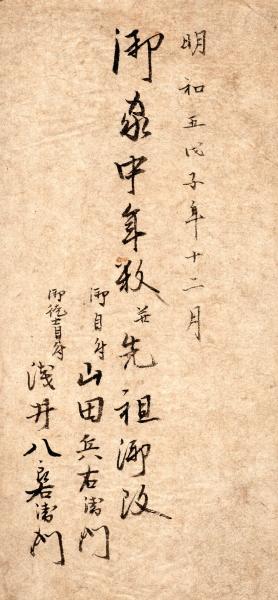 明和五戊子年十二月
御家中年数並先祖御改
御目付 山田兵右衛門
御徒目付 浅井八衛門